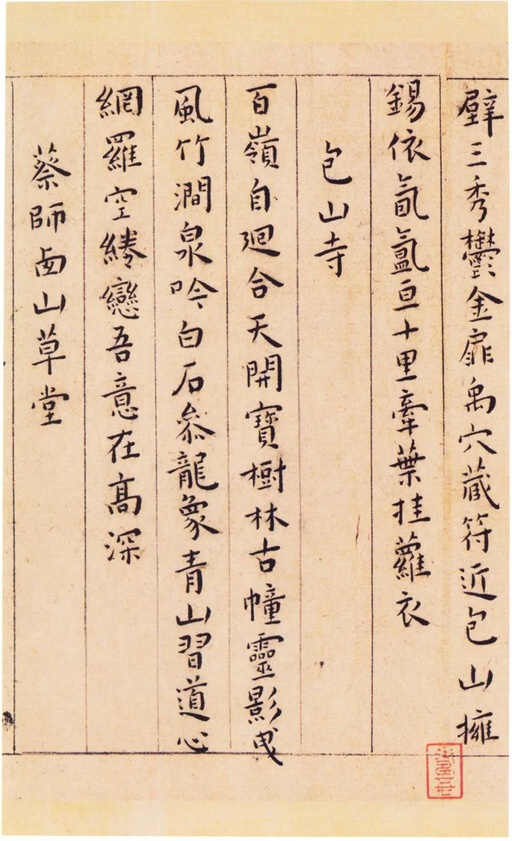 壁三秀鬱金扉禹穴藏符近包山擁
錫依氤氳亘十里牽葉挂蘿衣
包山寺
百嶺自廻合天開寶樹林古幢靈影曳
風竹澗泉吟白石叅龍象青山習道心
網羅空綣戀吾意在髙深
蔡師西山草堂